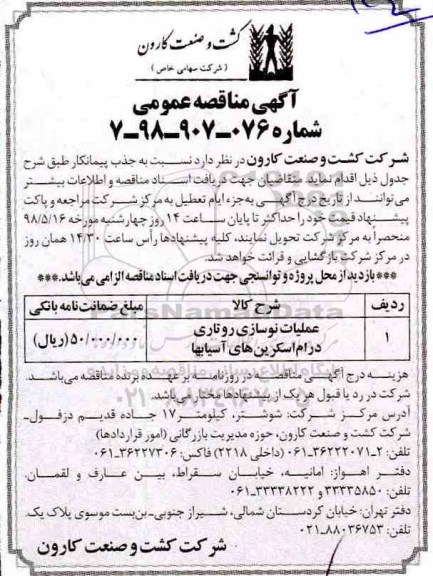 کشت و صنعت کارون
( شرکت سهامی خاص )
آگهی مناقصه عمومی
شماره ۰۷۶-۹۰۷-۹۸-۷
شرکت کشت و صنعت کارون در نظر دارد نسبت به جذب پیمانکار طبق شرح
جدول ذیل اقدام نماید. متقاضیان جهت دریافت اسناد مناقصه و اطلاعات بیشتر
می‌توانند از تاریخ درج آگهی به‌جزء ایام تعطیل به مرکز شرکت مراجعه و پاکت
پیشنهاد قیمت خود را حداکثر تا پایان ساعت ۱۴ روز چهارشنبه مورخه ۹۸/۵/۱۶
منحصراً به مرکز شرکت تحویل نمایند، کلیه پیشنهادها رأس ساعت ۱۴/۳۰ همان روز
در مرکز شرکت بازگشایی و قرائت خواهد شد.
***بازدید از محل پروژه و توانسنجی جهت دریافت اسناد مناقصه الزامی می‌باشد.***
ردیف شرح کالا مبلغ ضمانت نامه بانکی
۱ عملیات نوسازی روتاری درام اسکرین‌های آسیابها ۵۰/۰۰۰/۰۰۰ (ریال)
هزینه درج آگهی مناقصه در روزنامه بر عهده برنده مناقصه می‌باشد.
شرکت در رد یا قبول هر یک از پیشنهادها مختار می‌باشد.
آدرس مرکز شرکت: شوشتر، کیلومتر ۱۷ جاده قدیم دزفول-
شرکت کشت و صنعت کارون، حوزه مدیریت بازرگانی (امور قراردادها)
تلفن: ۲-۳۶۲۲۲۰۷۱-۰۶۱ (داخلی ۲۲۱۸) فاکس: ۳۶۲۲۷۳۰۶-۰۶۱
دفتر اهواز: امانیه، خیابان سقراط، بین عارف و لقمان.
تلفن: ۳۳۳۳۵۸۵۰ و ۳۳۳۳۸۲۲۲-۰۶۱
دفتر تهران: خیابان کردستان شمالی، شیراز جنوبی-بن‌بست موسوی پلاک یک.
تلفن: ۸۸۰۳۶۷۵۳-۰۲۱
شرکت کشت و صنعت کارون